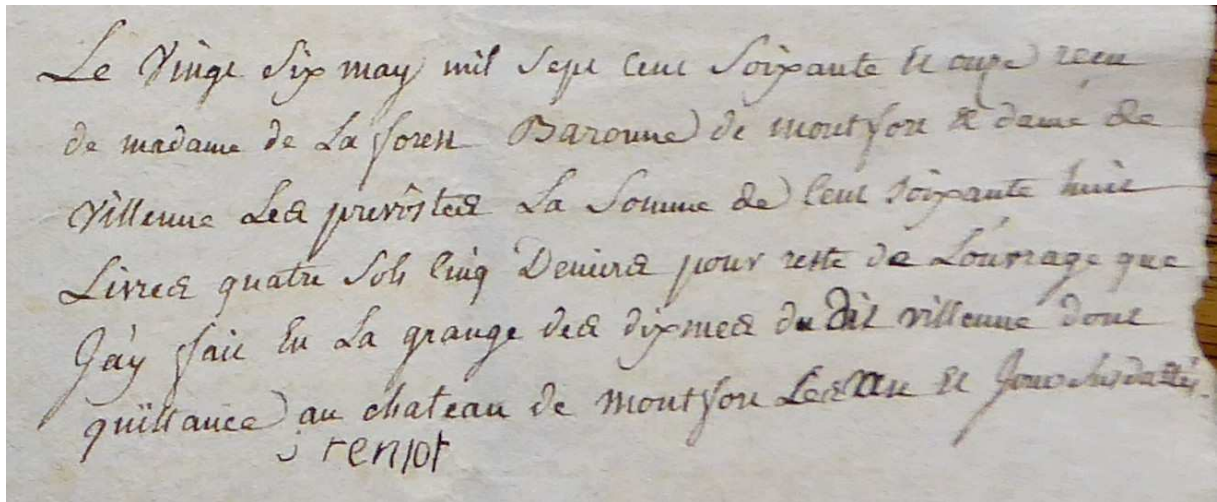 Le Vingt Six may mil Sept Cent Soixante Et onze receu
de madame de La foret Baronne de montfort Et dame de
Villenne Les prevôtes La Somme de Cent Soixante huit
Livres quatre Sols Cinq Deniers pour reste de L'ouvrage que
J'ay fait En La grange des dixmes du Dit villenne dont
quittance au chateau de montfort Les an Et Jour susdattés.